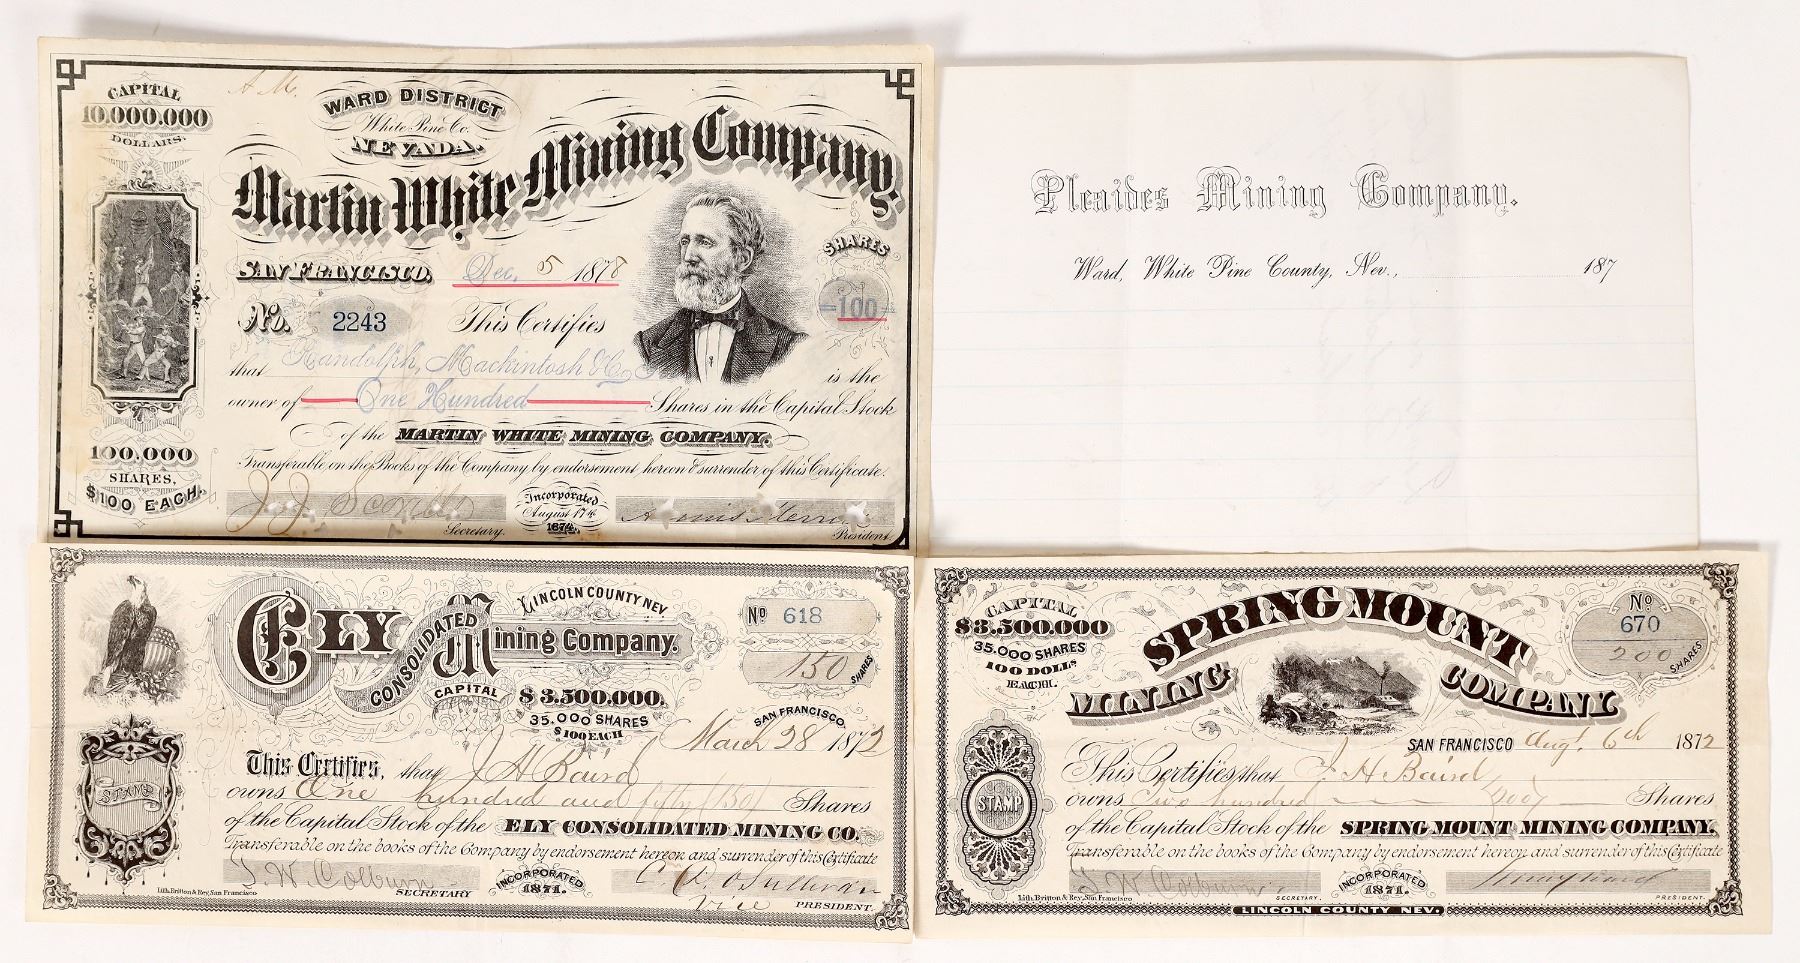 CAPITAL
10,000,000
DOLLARS.
A. M.
WARD DISTRICT
White Pine Co.
NEVADA.
Martin White Mining Company,
SHARES
SAN FRANCISCO, Dec. 5 1878
-100-
No. 2243 This Certifies
that Randolph, Mackintosh & Co is the
owner of One Hundred Shares in the Capital Stock
of the MARTIN WHITE MINING COMPANY.
100,000
SHARES,
$100 EACH.
Transferable on the Books of the Company by endorsement hereon & surrender of this Certificate.
Incorporated
August 17th
1874.
Secretary.
President
Pleaides Mining Company.
Ward, White Pine County, Nev., 187
ELY CONSOLIDATED Mining Company.
LINCOLN COUNTY NEV
No 618
150 SHARES
CAPITAL
$3,500,000.
35,000 SHARES
$100 EACH
SAN FRANCISCO,
March 28 1872
This Certifies, that J H Baird
owns One hundred and fifty (150) Shares
of the Capital Stock of the ELY CONSOLIDATED MINING CO.
Transferable on the books of the Company by endorsement hereon and surrender of this Certificate
STAMP
T. W. Colburn
SECRETARY
INCORPORATED
1871.
C. D. O'Sullivan
Vice PRESIDENT.
Lith. Britton & Rey, San Francisco
CAPITAL
$3,500,000
35,000 SHARES
100 DOLLS
EACH.
SPRING MOUNT
MINING COMPANY
No
670
200 SHARES
SAN FRANCISCO Augt. 6th 1872
This Certifies that J. H. Baird
owns Two hundred (200) Shares
of the Capital Stock of the SPRING MOUNT MINING COMPANY.
Transferable on the books of the Company by endorsement hereon and surrender of this Certificate
STAMP
T. W. Colburn
SECRETARY.
INCORPORATED
1871.
PRESIDENT.
Lith. Britton & Rey, San Francisco
LINCOLN COUNTY NEV.